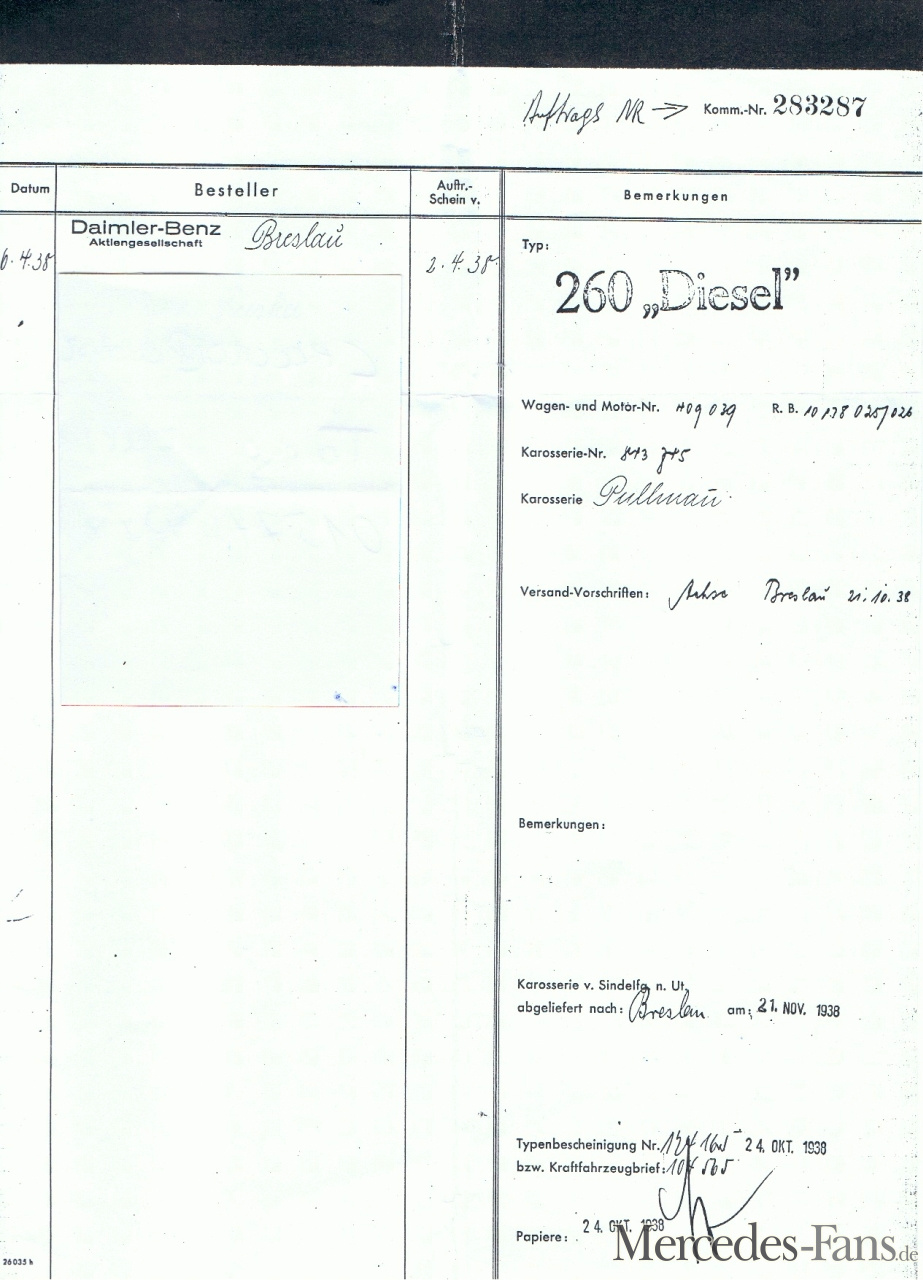 Auftrags NR → Komm.-Nr. 283287
Datum
Besteller
Auftr.-
Schein v.
Bemerkungen
Daimler-Benz
Aktiengesellschaft
Breslau
6.4.38
2.4.38.
Typ:
260 „Diesel”
Wagen- und Motor-Nr. R. B.
Karosserie-Nr.
Karosserie Pullman
Versand-Vorschriften: Achse Breslau 21.10.38
Bemerkungen:
Karosserie v. Sindelfg. n. Ut.
abgeliefert nach: Breslau am: 21. NOV. 1938
Typenbescheinigung Nr. 24. OKT. 1938
bzw. Kraftfahrzeugbrief:
Papiere: 24. OKT. 1938
26035 h
Mercedes-Fans.de